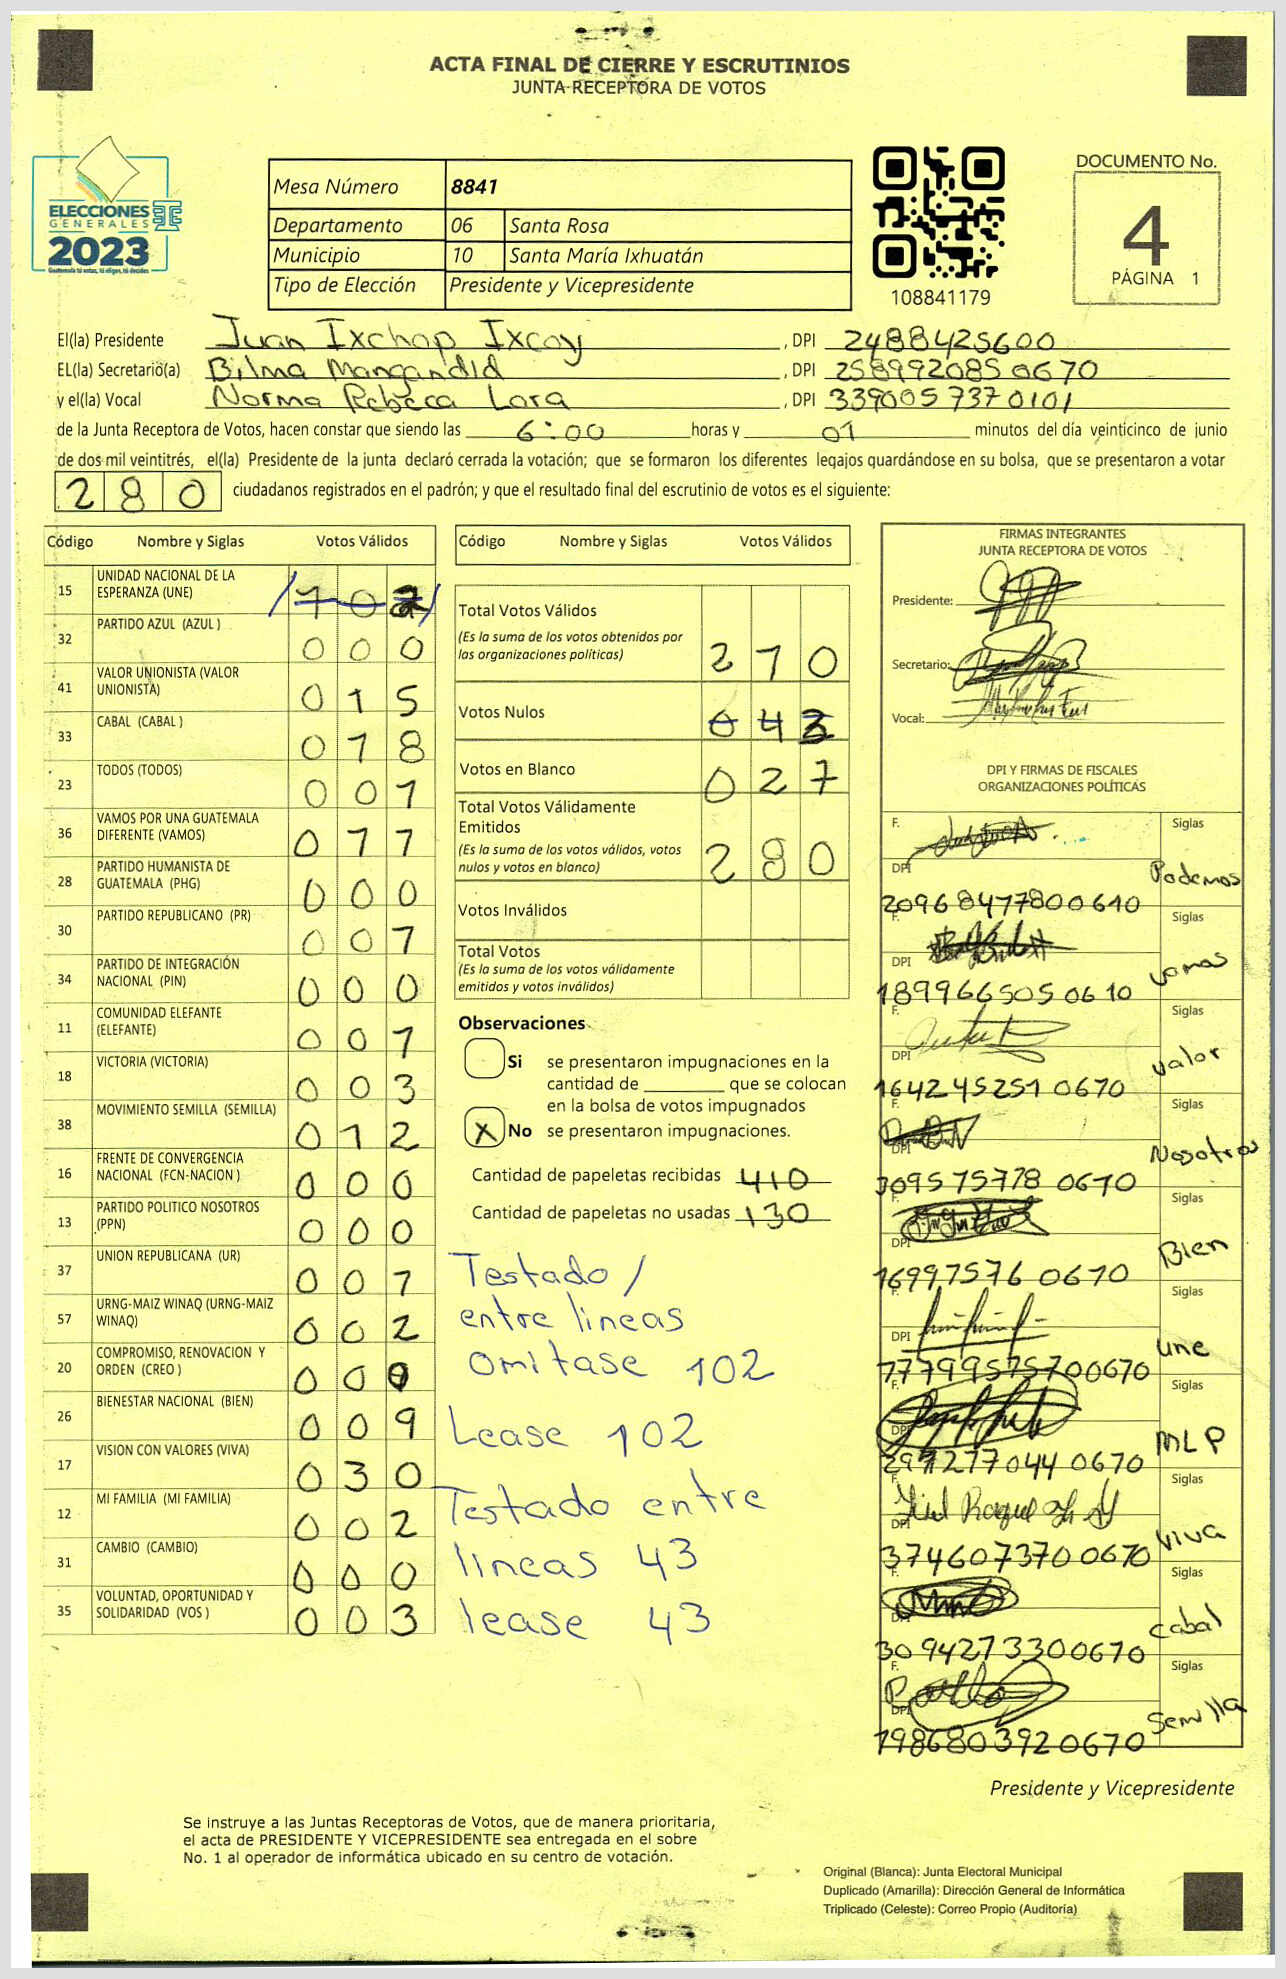 ACTA FINAL DE CIERRE Y ESCRUTINIOS
JUNTA RECEPTORA DE VOTOS
ELECCIONES
GENERALES
2023
Guatemala tú votas, tú eliges, tú decides
Mesa Número 8841
Departamento 06 Santa Rosa
Municipio 10 Santa María Ixhuatán
Tipo de Elección Presidente y Vicepresidente
108841179
DOCUMENTO No.
4
PÁGINA 1
El(la) Presidente Juan Ixchop Ixcoy, DPI 2488425600
EL(la) Secretario(a) Bilma Mangandid, DPI 2589920850670
y el(la) Vocal Norma Rebeca Lora, DPI 3390057370101
de la Junta Receptora de Votos, hacen constar que siendo las 6:00 horas y 01 minutos del día veinticinco de junio
de dos mil veintitrés, el(la) Presidente de la junta declaró cerrada la votación; que se formaron los diferentes legajos guardándose en su bolsa, que se presentaron a votar
280 ciudadanos registrados en el padrón; y que el resultado final del escrutinio de votos es el siguiente:
Código Nombre y Siglas Votos Válidos
15 UNIDAD NACIONAL DE LA ESPERANZA (UNE) /102/
32 PARTIDO AZUL (AZUL ) 000
41 VALOR UNIONISTA (VALOR UNIONISTA) 015
33 CABAL (CABAL ) 018
23 TODOS (TODOS) 001
36 VAMOS POR UNA GUATEMALA DIFERENTE (VAMOS) 077
28 PARTIDO HUMANISTA DE GUATEMALA (PHG) 000
30 PARTIDO REPUBLICANO (PR) 001
34 PARTIDO DE INTEGRACIÓN NACIONAL (PIN) 000
11 COMUNIDAD ELEFANTE (ELEFANTE) 001
18 VICTORIA (VICTORIA) 003
38 MOVIMIENTO SEMILLA (SEMILLA) 012
16 FRENTE DE CONVERGENCIA NACIONAL (FCN-NACION ) 000
13 PARTIDO POLITICO NOSOTROS (PPN) 000
37 UNION REPUBLICANA (UR) 001
57 URNG-MAIZ WINAQ (URNG-MAIZ WINAQ) 002
20 COMPROMISO, RENOVACION Y ORDEN (CREO ) 00
26 BIENESTAR NACIONAL (BIEN) 009
17 VISION CON VALORES (VIVA) 030
12 MI FAMILIA (MI FAMILIA) 002
31 CAMBIO (CAMBIO) 000
35 VOLUNTAD, OPORTUNIDAD Y SOLIDARIDAD (VOS ) 003
Código Nombre y Siglas Votos Válidos
Total Votos Válidos
(Es la suma de los votos obtenidos por
las organizaciones políticas) 210
Votos Nulos 043
Votos en Blanco 027
Total Votos Válidamente
Emitidos
(Es la suma de los votos válidos, votos
nulos y votos en blanco) 280
Votos Inválidos
Total Votos
(Es la suma de los votos válidamente
emitidos y votos inválidos)
Observaciones
Si se presentaron impugnaciones en la
cantidad de ________ que se colocan
en la bolsa de votos impugnados
X No se presentaron impugnaciones.
Cantidad de papeletas recibidas 410
Cantidad de papeletas no usadas 130
Testado /
entre lineas
omitase 102
Lease 102
Testado entre
lineas 43
lease 43
FIRMAS INTEGRANTES
JUNTA RECEPTORA DE VOTOS
Presidente:
Secretario:
Vocal:
DPI Y FIRMAS DE FISCALES
ORGANIZACIONES POLÍTICAS
F. Siglas
DPI Podemos
20968477800610
F. Siglas
DPI vamos
1899665050610
F. Siglas
DPI valor
1642452510670
F. Siglas
DPI Nosotros
3095757780670
F. Siglas
DPI Bien
169975760670
F. Siglas
DPI une
77799575700670
F. Siglas
DPI MLP
2971277044 0670
F. Siglas
DPI viva
3746073700670
F. Siglas
DPI cabal
3094273300670
F. Siglas
DPI Semilla
1986803920670
Presidente y Vicepresidente
Se instruye a las Juntas Receptoras de Votos, que de manera prioritaria,
el acta de PRESIDENTE Y VICEPRESIDENTE sea entregada en el sobre
No. 1 al operador de informática ubicado en su centro de votación.
Original (Blanca): Junta Electoral Municipal
Duplicado (Amarilla): Dirección General de Informática
Triplicado (Celeste): Correo Propio (Auditoría)